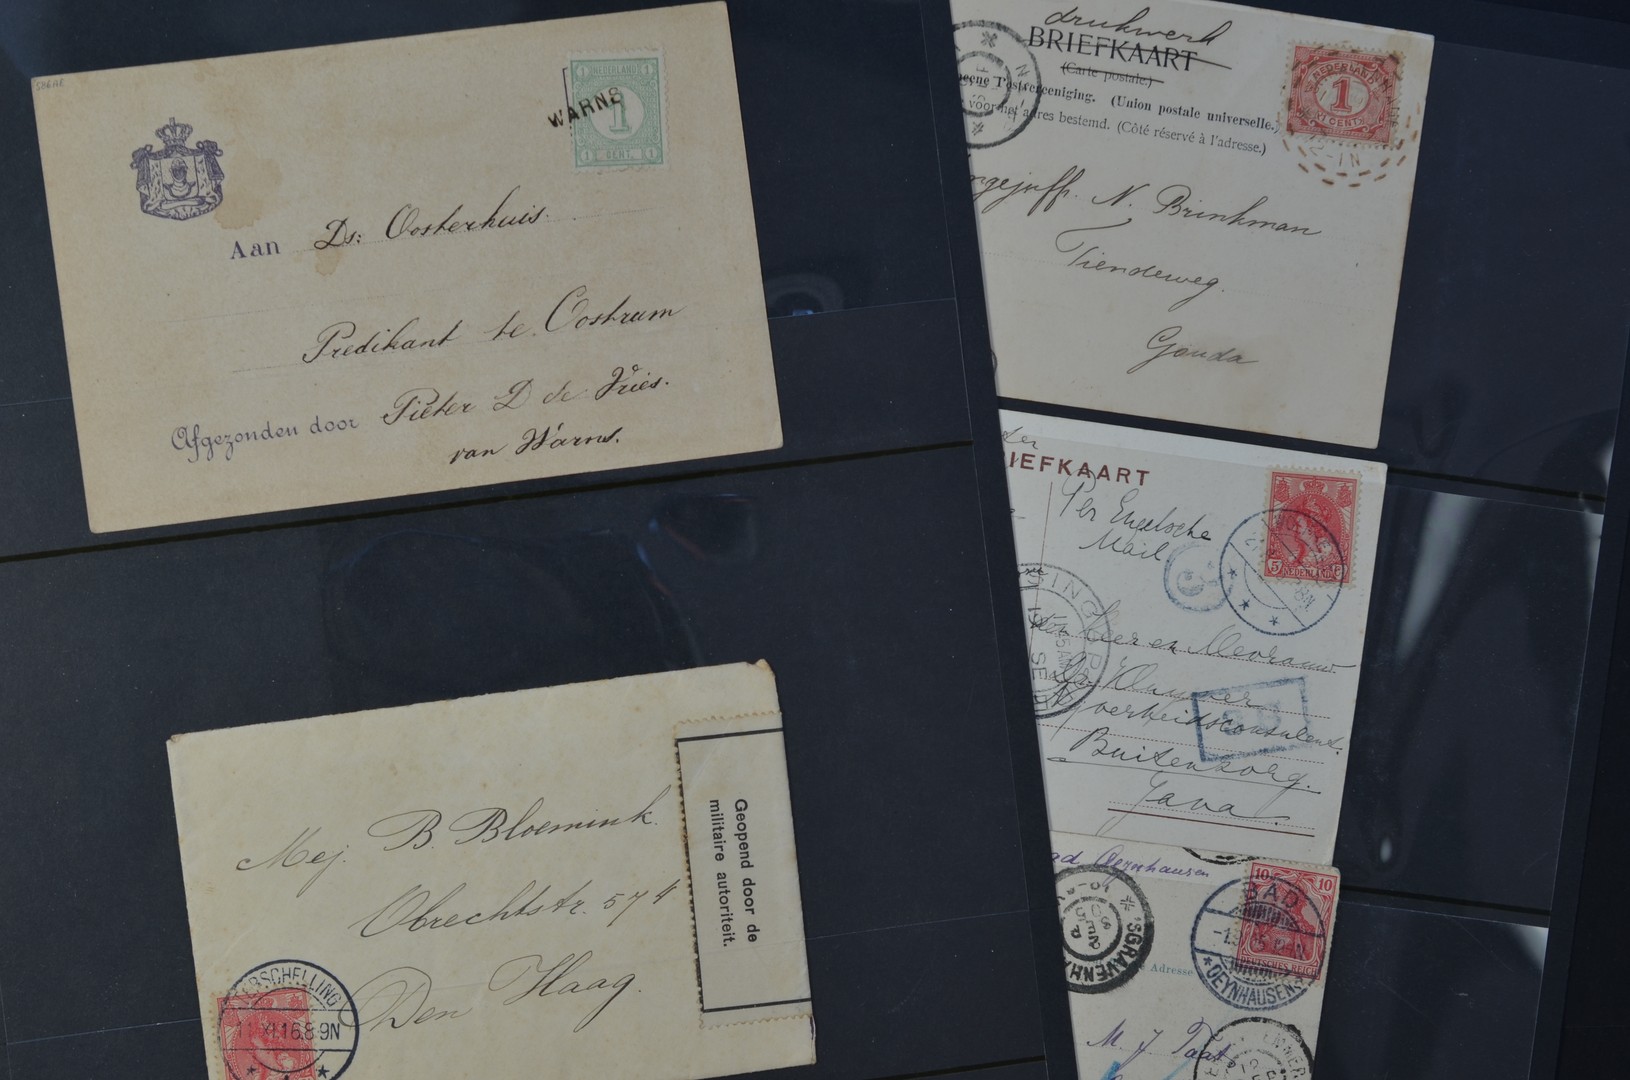 NEDERLAND
1 1
1
1 CENT. 1
WARNS
Aan Ds: Oosterhuis.
Predikant te Oostrum
Afgezonden door Pieter D de Vries.
van Warns.
drukwerk
BRIEFKAART
(Carte postale.)
Postvereeniging. (Union postale universelle.)
voor het adres bestemd. (Côté réservé à l'adresse.)
NEDERLAND
1
CENT
N. Brinkman
Tiendeweg.
Gouda
IEFKAART
Per Engelsche
Mail
5
NEDERLAND
SINGAPORE
SE
den Heer en Mevrouw
Nijverheidsconsulent.
Buitenzorg.
Java.
Mej. B. Bloemink.
Obrechtstr. 574
Den Haag.
Geopend door de
militaire autoriteit.
ERSCHELLING
11.XI.16.8-9N
ad Oeynhausen
10 10
DEUTSCHES REICH
BAD
OEYNHAUSEN
'SGRAVENH
Adresse
M. J. Taat